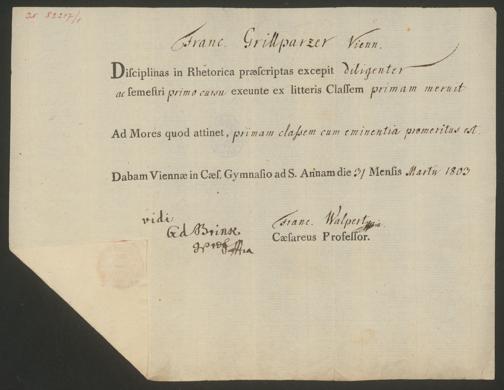 Franc. Grillparzer Vienn.
Disciplinas in Rhetorica præscriptas excepit diligenter
ac semestri primo cursu exeunte ex litteris Classem primam meruit
Ad Mores quod attinet, primam classem cum eminentia promeritus est.
Dabam Viennæ in Cæs. Gymnasio ad S. Annam die 31 Mensis Martii 1803
vidi
Franc. Walpert
Cæsareus Professor.